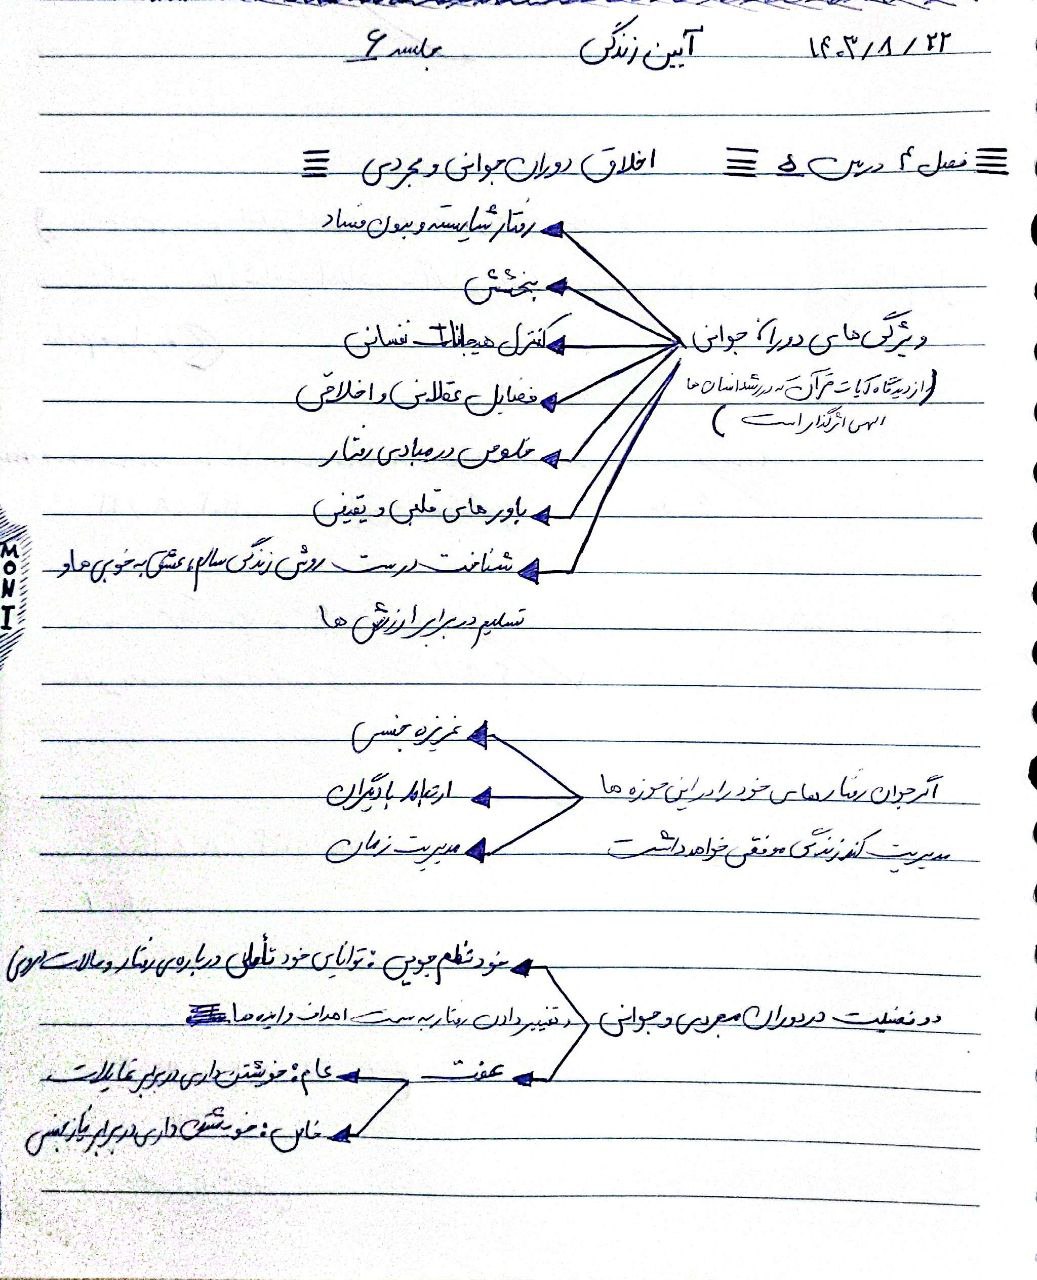 ۱۴۰۳/۸/۲۲ آیین زندگی جلسه ۶
فصل ۴ درس ۵ اخلاق دوران جوانی و مجردی
رفتار شایسته و بدون فساد
بخشش
ویژگی های دوران جوانی کنترل هیجانات نفسانی
(از دیدگاه آیات قرآن که در رشد انسان ها فضایل عقلانی و اخلاقی
الهی اثرگذار است)
خلوص در مبادی رفتار
باورهای قلبی و یقینی
شناخت درست روش زندگی سالم، عشق به خوبی ها و
تسلیم در برابر ارزش ها
غریزه جنسی
اگر جوان رفتارهای خود را در این حوزه ها ارتباط با دیگران
مدیریت کند زندگی موفقی خواهد داشت مدیریت زمان
خود نظم جویی: توانایی خود تأملی درباره ی رفتار و حالات درونی
دو فضیلت در دوران مجردی و جوانی و تغییر دادن رفتار به سمت اهداف و ایده ها
عفت عام: خویشتن داری در برابر تمایلات
خاص: خویشتن داری در برابر نیاز جنسی
MONI